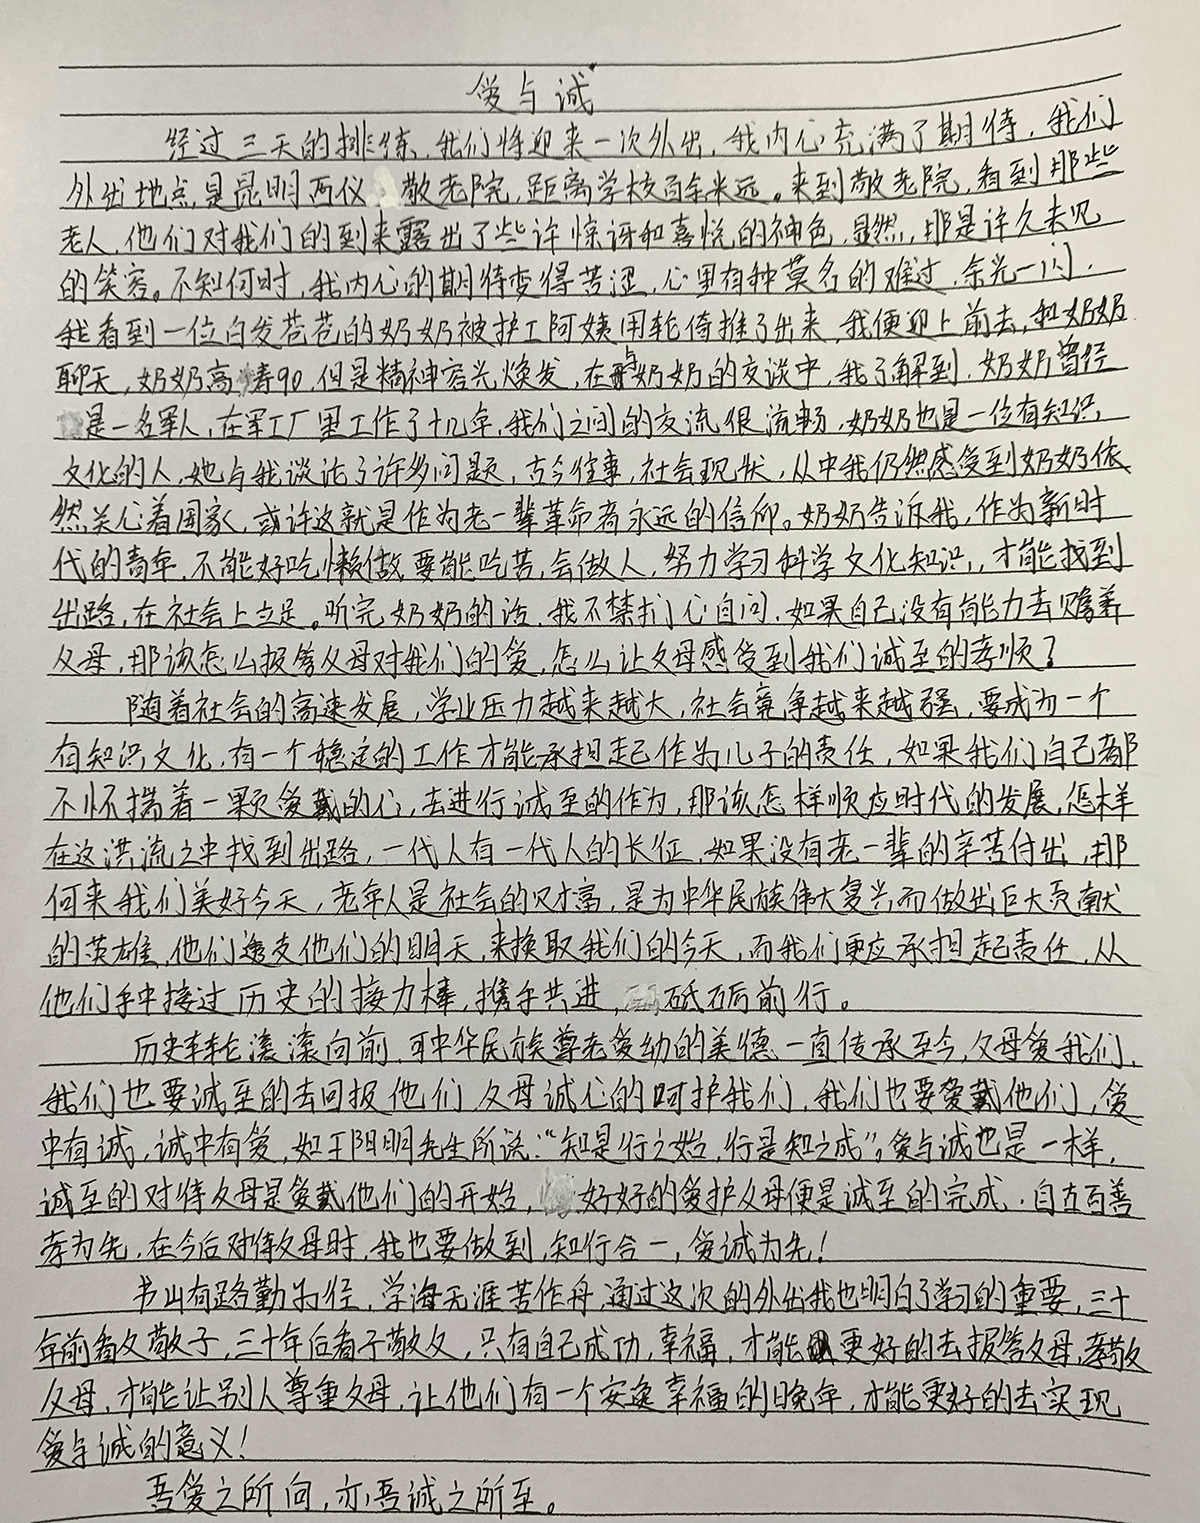 爱与诚
经过三天的排练,我们将迎来一次外出,我内心充满了期待,我们
外出地点是昆明两仪敬老院,距离学校百余米远。来到敬老院,看到那些
老人,他们对我们的到来露出了些许惊讶和喜悦的神色,显然,那是许久未见
的笑容。不知何时,我内心的期待变得苦涩,心里有种莫名的难过,余光一闪.
我看到一位白发苍苍的奶奶被护工阿姨用轮倚推了出来,我便迎上前去,和奶奶
聊天,奶奶高寿90,但是精神容光焕发,在与奶奶的交谈中,我了解到,奶奶曾经
是一名军人,在军工厂里工作了十几年,我们之间的交流很流畅,奶奶也是一位有知识,
文化的人,她与我谈论了许多问题,古今往事,社会现状,从中我仍然感受到奶奶依
然关心着国家,或许这就是作为老一辈革命者永远的信仰。奶奶告诉我,作为新时
代的青年,不能好吃懒做,要能吃苦,会做人,努力学习科学文化知识,才能找到
出路,在社会上立足。听完奶奶的话,我不禁扪心自问,如果自己没有能力去赡养
父母,那该怎么报答父母对我们的爱,怎么让父母感受到我们诚至的孝顺?
随着社会的高速发展,学业压力越来越大,社会竞争越来越强,要成为一个
有知识文化,有一个稳定的工作才能承担起作为儿子的责任,如果我们自己都
不怀揣着一颗爱戴的心,去进行诚至的作为,那该怎样顺应时代的发展,怎样
在这洪流之中找到出路,一代人有一代人的长征,如果没有老一辈的辛苦付出,那
何来我们美好今天,老年人是社会的财富,是为中华民族伟大复兴而做出巨大贡献
的英雄,他们透支他们的明天,来换取我们的今天,而我们更应承担起责任,从
他们手中接过历史的接力棒,携手共进,砥砺前行。
历史车轮滚滚向前,可中华民族尊老爱幼的美德一直传承至今,父母爱我们,
我们也要诚至的去回报他们,父母诚心的呵护我们,我们也要爱戴他们,爱
中有诚,诚中有爱,如王阳明先生所说:“知是行之始,行是知之成”。爱与诚也是一样,
诚至的对待父母是爱戴他们的开始,好好的爱护父母便是诚至的完成.自古百善
孝为先,在今后对待父母时,我也要做到,知行合一,爱诚为先!
书山有路勤为径,学海无涯苦作舟,通过这次的外出我也明白了学习的重要,三十
年前看父敬子,三十年后看子敬父,只有自己成功,幸福,才能更好的去报答父母,孝敬
父母,才能让别人尊重父母,让他们有一个安逸幸福的晚年,才能更好的去实现
爱与诚的意义!
吾爱之所向,亦吾诚之所至。